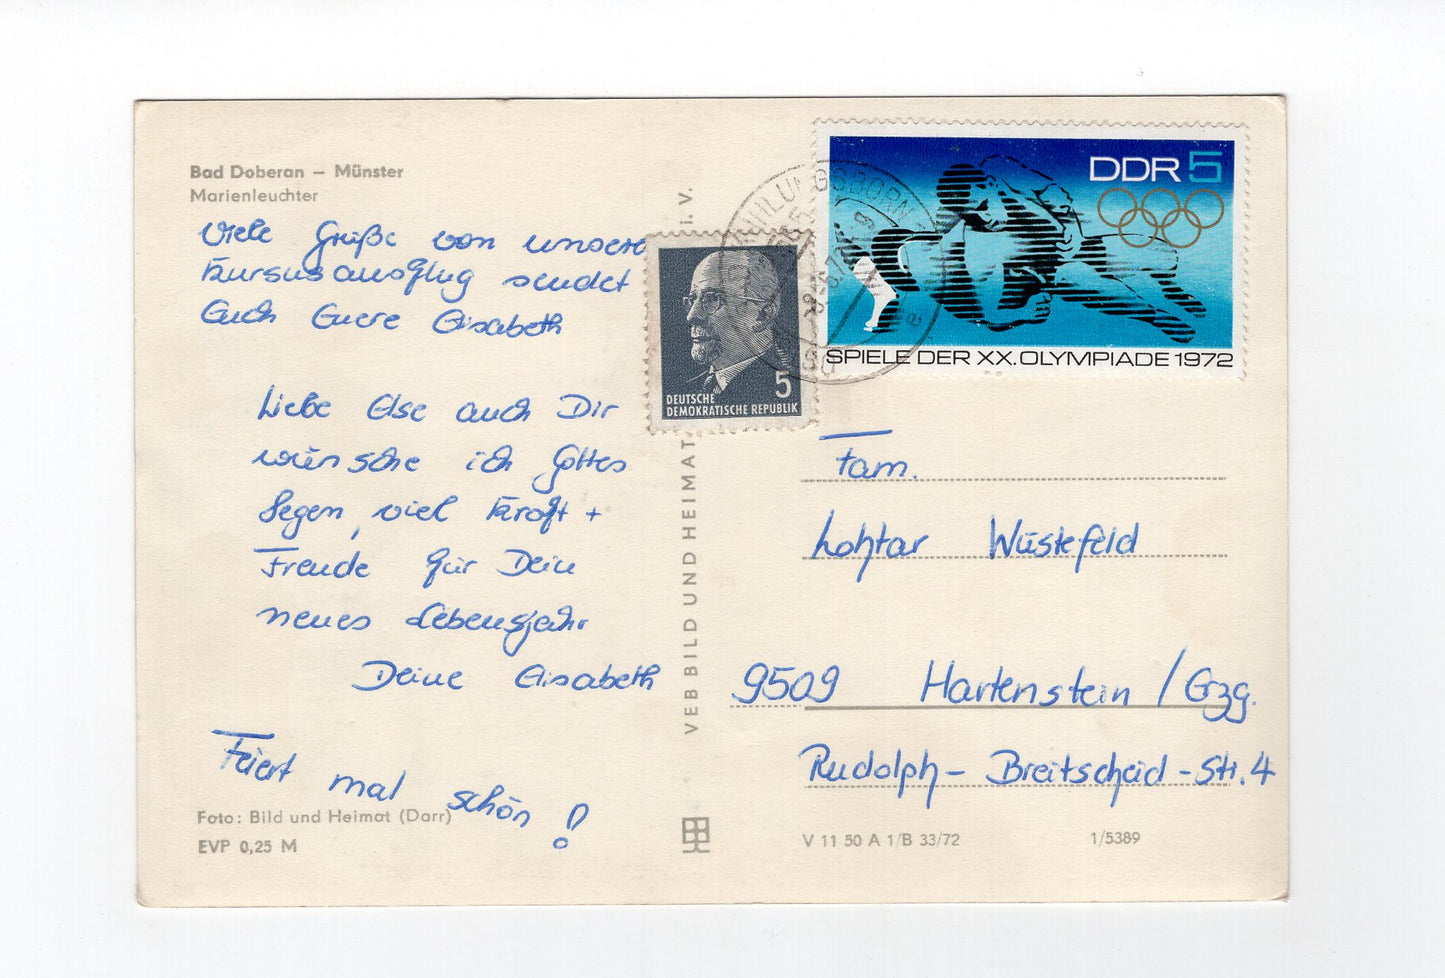 Bad Doberan – Münster
Marienleuchter
Viele Grüße von unserem
Kursusausflug sendet
Euch Euere Elisabeth
Liebe Else auch Dir
wünsche ich Gottes
Segen, viel Kraft +
Freude für Dein
neues Lebensjahr
Deine Elisabeth
Feiert mal schön!
Foto: Bild und Heimat (Darr)
EVP 0,25 M
VEB BILD UND HEIMAT
i. V.
DEUTSCHE
DEMOKRATISCHE REPUBLIK
5
DDR 5
SPIELE DER XX. OLYMPIADE 1972
KÜHLUNGSBORN
Fam.
Lohtar Wüstefeld
9509 Hartenstein / Erzg.
Rudolph-Breitscheid-Str. 4
V 11 50 A 1/B 33/72
1/5389